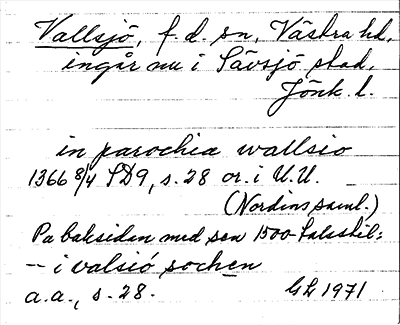 Vallsjö, f.d. sn, Västra hd,
ingår nu i Sävsjö stad,
Jönk. l.
in parochia wallsio
1366 8/4 SD9, s. 28 or. i U.U.
(Nordins saml.)
På baksidan med sen 1500-talsstil:
-- i valsió sochen
a.a., s. 28. GL 1971